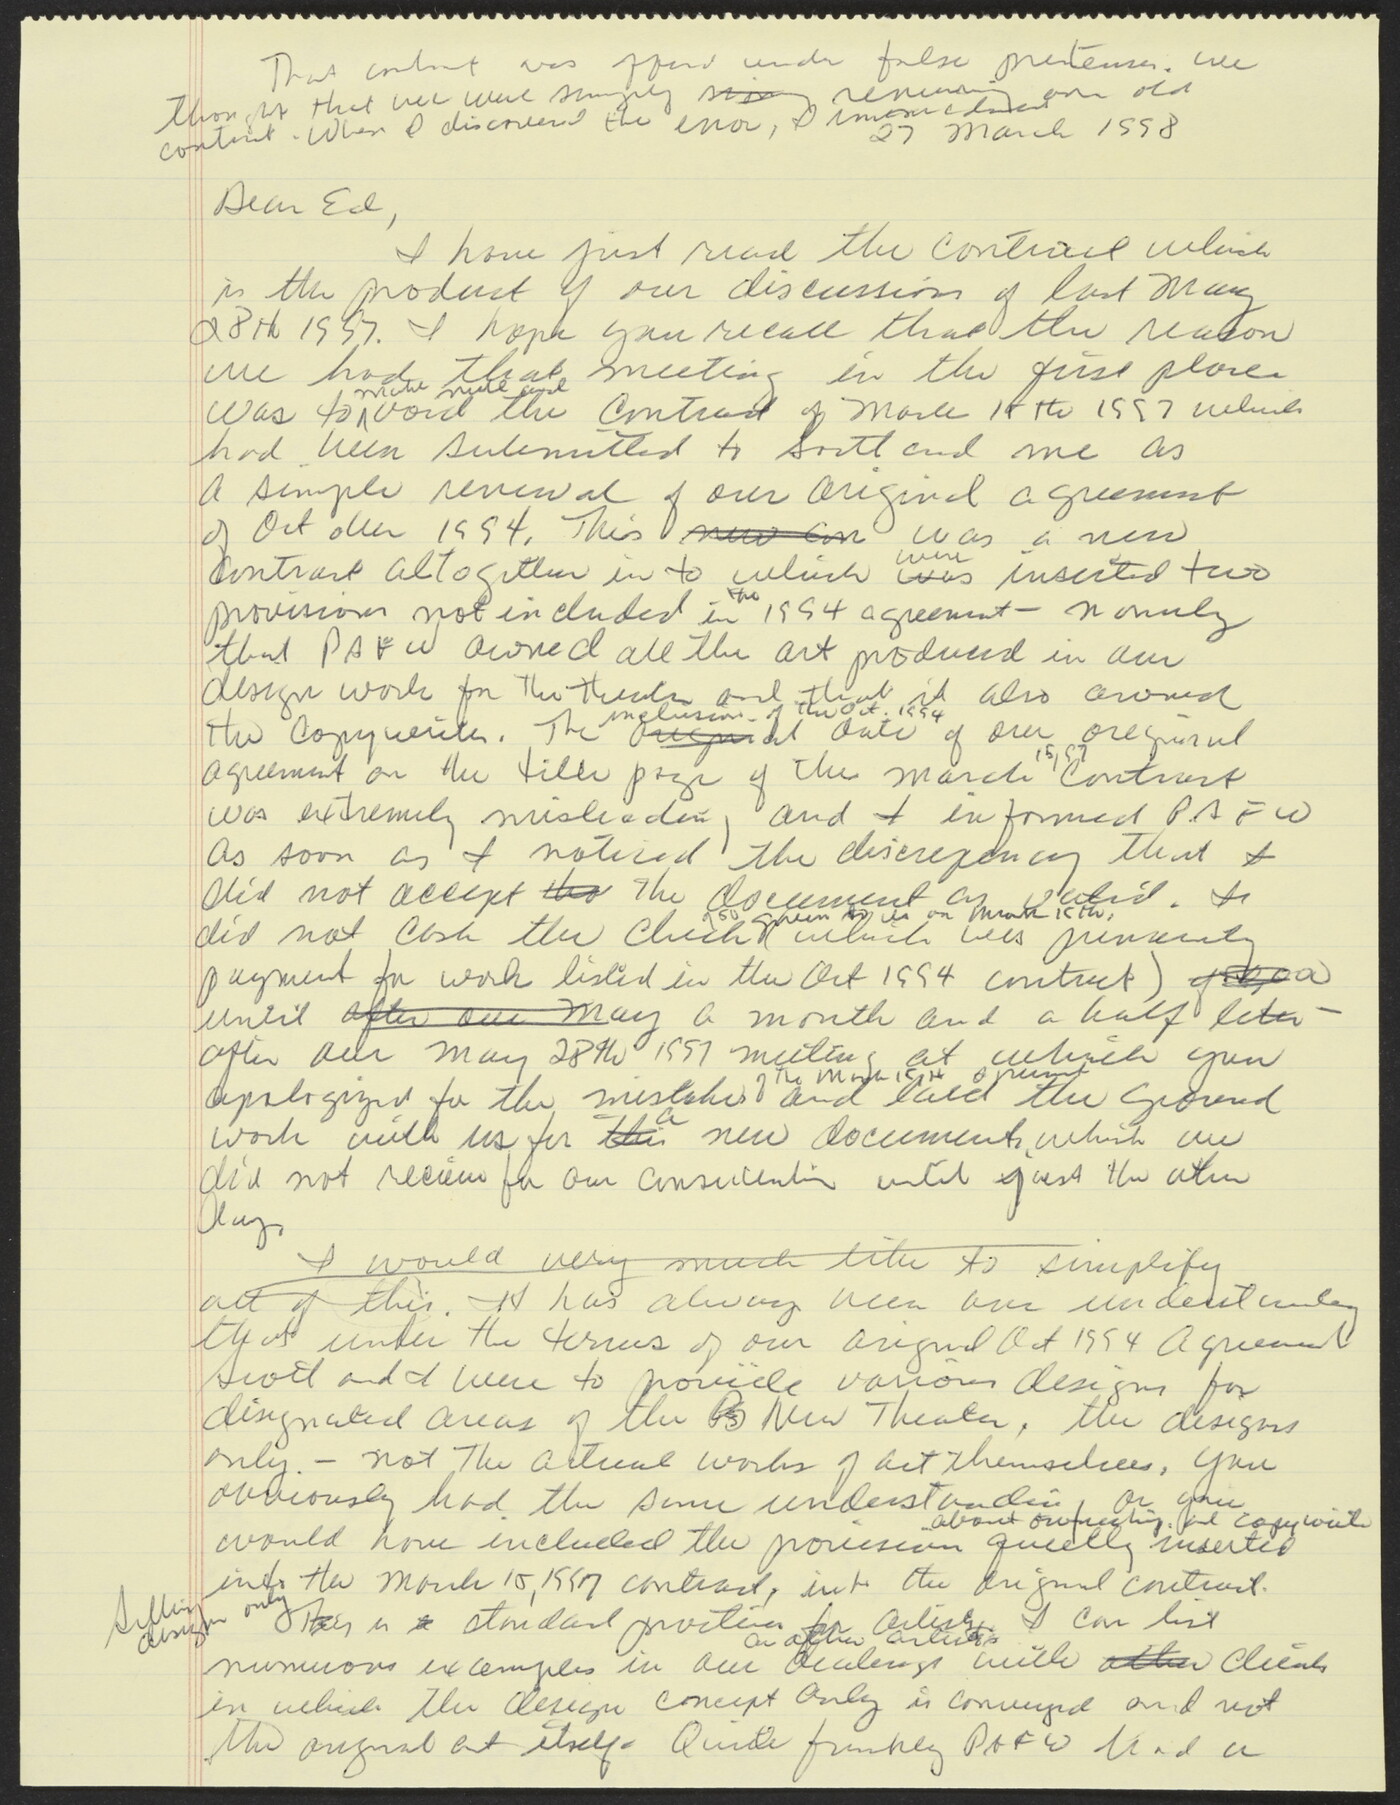 That contract was offered under false pretenses. We
thought that we were simply signing renewing our old
contract. When I discovered the error, I immediately
27 March 1998
Dear Ed,
I have just read the contract which
is the product of our discussion of last May
28th 1997. I hope you recall that the reason
we had that meeting in the first place
make null and
was to void the contract of March 15th 1997 which
had been submitted to Scott and me as
a simple renewal of our original agreement
of October 1994. This new con was a new
were
contract altogether in to which was inserted two
the
provisions not included in 1994 agreement - namely
that PAFW owned all the art produced in our
design work for the theater and that it also owned
inclusion of the Oct. 1994
the copywrites. The original date of our original
15, 97
agreement on the title page of the March contract
was extremely misleading and I informed PAFW
as soon as I noticed the discrepency that I
did not accept the the document as valid. I
given to us on March 15th,
did not cash the check (which was primarily
payment for work listed in the Oct 1994 contract)
until after our May a month and a half later -
after our May 28th 1997 meeting at which you
of the March 15th agreement
apologized for the mistake and laid the ground
a
work with us for this new document, which we
did not recieve for our consideration until just the other
day.
I would very much like to simplify
all of this. It has always been our understanding
that under the terms of our original Oct 1994 Agreement
Scott and I were to provide various designs for
designated areas of the New Theater, the designs
only. - not the actual works of art themselves. You
obviously had the same understanding, or you
about ownership and copywrite
would have included the provision quietly inserted
into the March 15, 1997 contract, into the original contract.
Selling
design only
This is a standard practice for artists. I can list
or other artists
numerous examples in our dealings with other clients
in which the design concept only is conveyed and not
the original art itself. Quite frankly PAFW had a